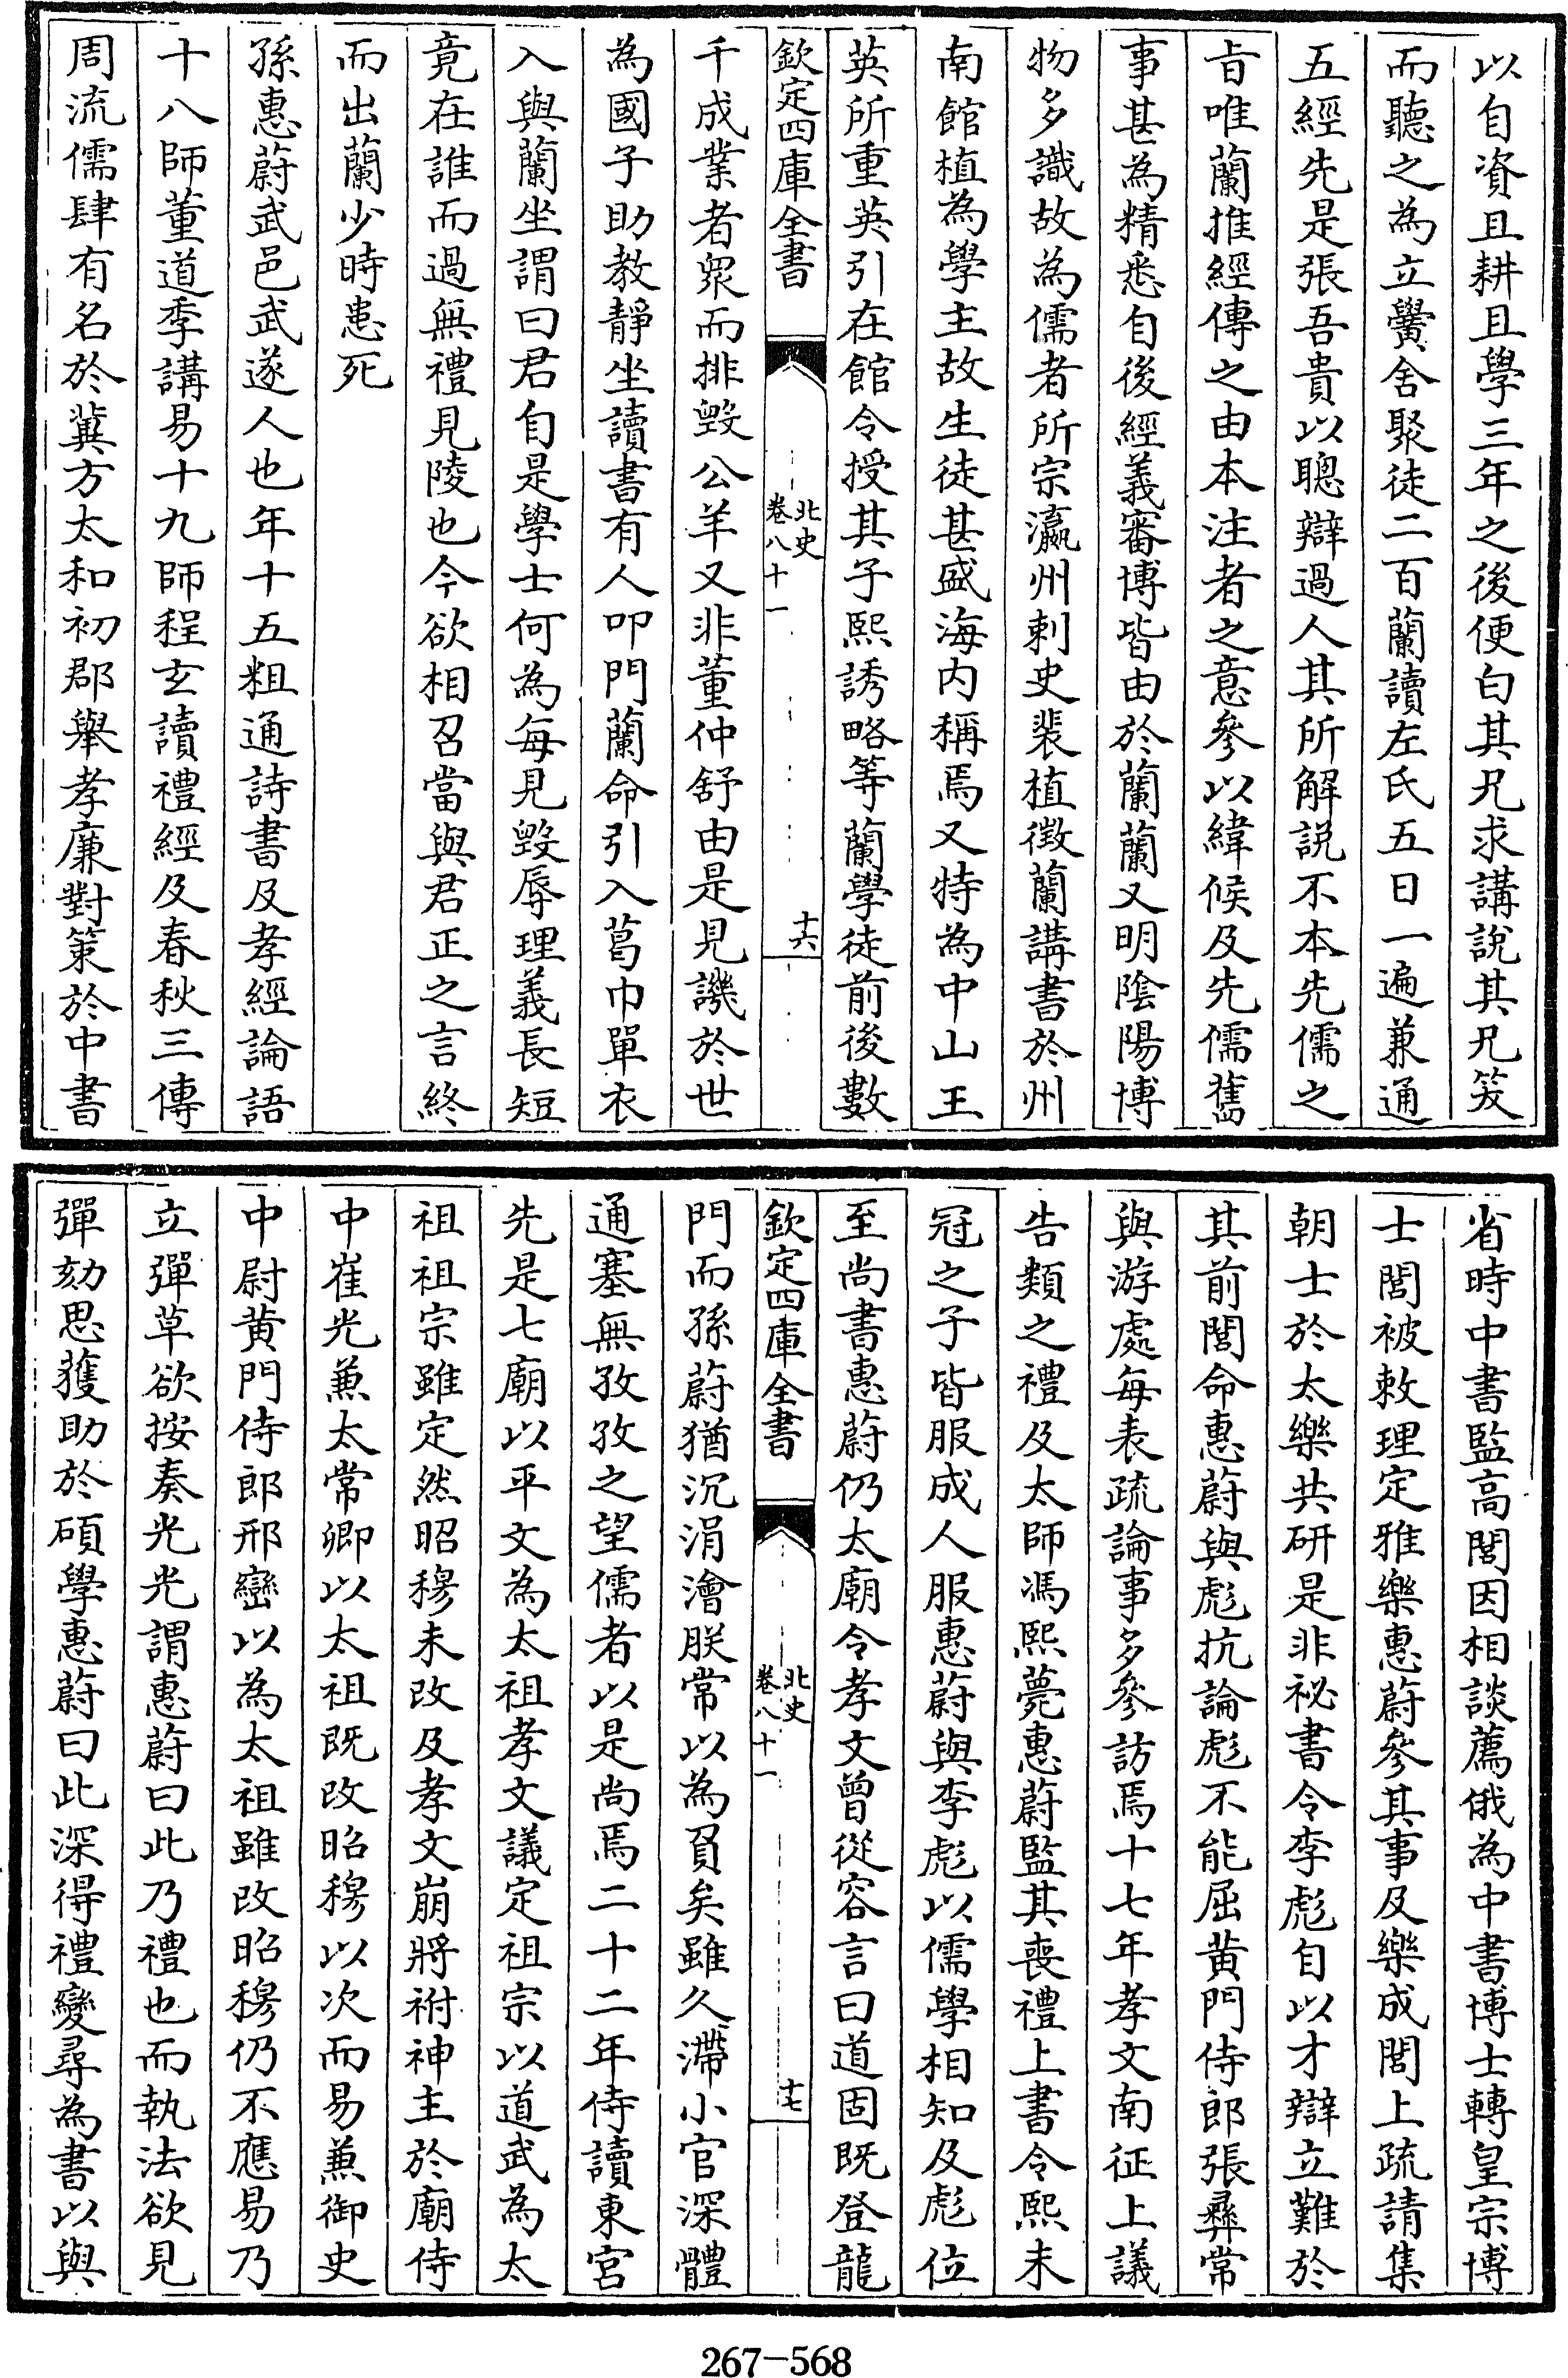 以自資且耕且學三年之後便白其兄求講說其兄笑
而聽之為立黌舍聚徒二百蘭讀左氏五日一遍兼通
五經先是張吾貴以聰辯過人其所解説不本先儒之
旨唯蘭推經傳之由本注者之意參以緯候及先儒舊
事甚為精悉自後經義審博皆由於蘭蘭又明陰陽博
物多識故為儒者所宗瀛州刺史裴植徵蘭講書於州
南館植為學主故生徒甚盛海内稱焉又特為中山王
英所重英引在館令授其子熙誘略等蘭學徒前後數
欽定四庫全書
北史
卷八十一
十六
千成業者衆而排毁公羊又非董仲舒由是見譏於世
為國子助教靜坐讀書有人叩門蘭命引入葛巾單衣
入與蘭坐謂曰君自是學士何為每見毁辱理義長短
竟在誰而過無禮見陵也今欲相召當與君正之言終
而出蘭少時患死
孫惠蔚武邑武遂人也年十五粗通詩書及孝經論語
十八師董道季講易十九師程玄讀禮經及春秋三傳
周流儒肆有名於冀方太和初郡舉孝廉對策於中書
省時中書監高閭因相談薦俄為中書博士轉皇宗博
士閭被敕理定雅樂惠蔚參其事及樂成閭上疏請集
朝士於太樂共研是非祕書令李彪自以才辯立難於
其前閭命惠蔚與彪抗論彪不能屈黄門侍郎張彝常
與游處每表疏論事多參訪焉十七年孝文南征上議
告類之禮及太師馮熙薨惠蔚監其喪禮上書令熙未
冠之子皆服成人服惠蔚與李彪以儒學相知及彪位
至尚書惠蔚仍太廟令孝文曾從容言曰道固既登龍
欽定四庫全書
北史
卷八十一
十七
門而孫蔚猶沉涓澮朕常以為負矣雖久滯小官深體
通塞無孜孜之望儒者以是尚焉二十二年侍讀東宮
先是七廟以平文為太祖孝文議定祖宗以道武為太
祖祖宗雖定然昭穆未改及孝文崩將祔神主於廟侍
中崔光兼太常卿以太祖既改昭穆以次而易兼御史
中尉黄門侍郎邢巒以為太祖雖改昭穆仍不應易乃
立彈草欲按奏光光謂惠蔚曰此乃禮也而執法欲見
彈劾思獲助於碩學惠蔚曰此深得禮變尋為書以與
267-568